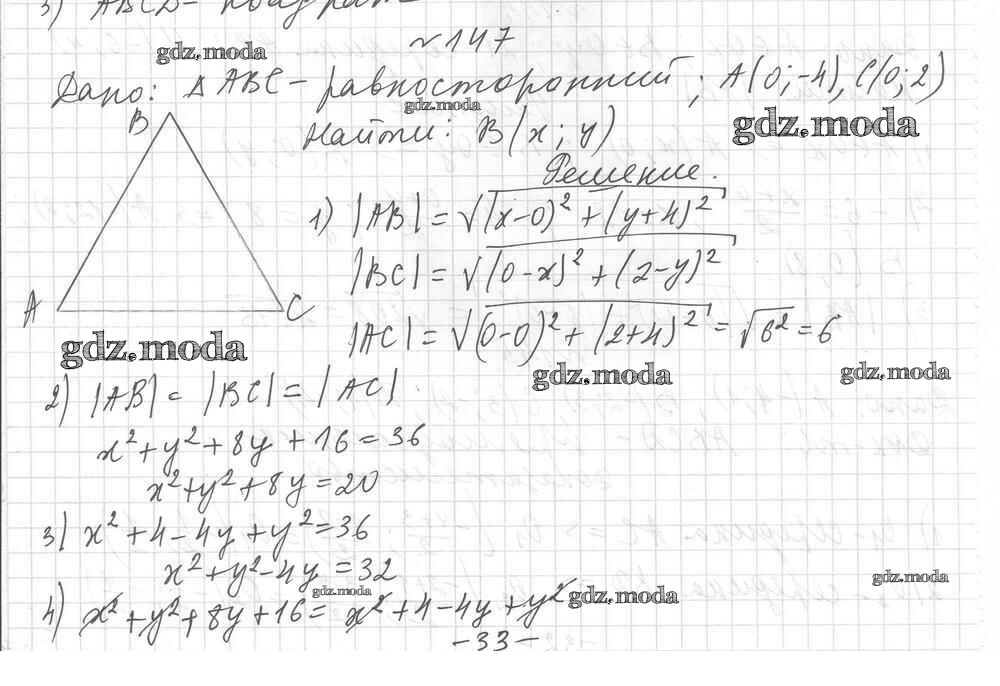 3) ABCD - квадрат
№147
gdz.moda
Дано: Δ ABC - равносторонний; A(0;-4), C(0;2)
gdz.moda
Найти: B(x; y)
gdz.moda
B
Решение.
1) |AB| = √(x-0)² + (y+4)²
|BC| = √(0-x)² + (2-y)²
A
C
|AC| = √(0-0)² + (2+4)² = √6² = 6
gdz.moda
gdz.moda
gdz.moda
2) |AB| = |BC| = |AC|
x² + y² + 8y + 16 = 36
x² + y² + 8y = 20
3) x² + 4 - 4y + y² = 36
x² + y² - 4y = 32
gdz.moda
gdz.moda
gdz.moda
4) x² + y² + 8y + 16 = x² + 4 - 4y + y²
-33-